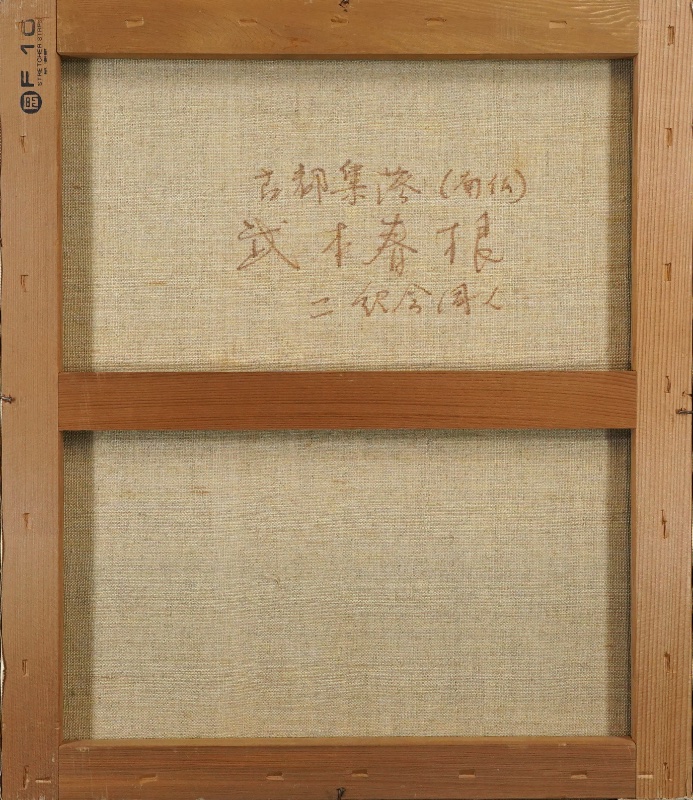 古都集落(南仏)
武本春根
二紀会同人
F 10
STRETCHER STRIPS